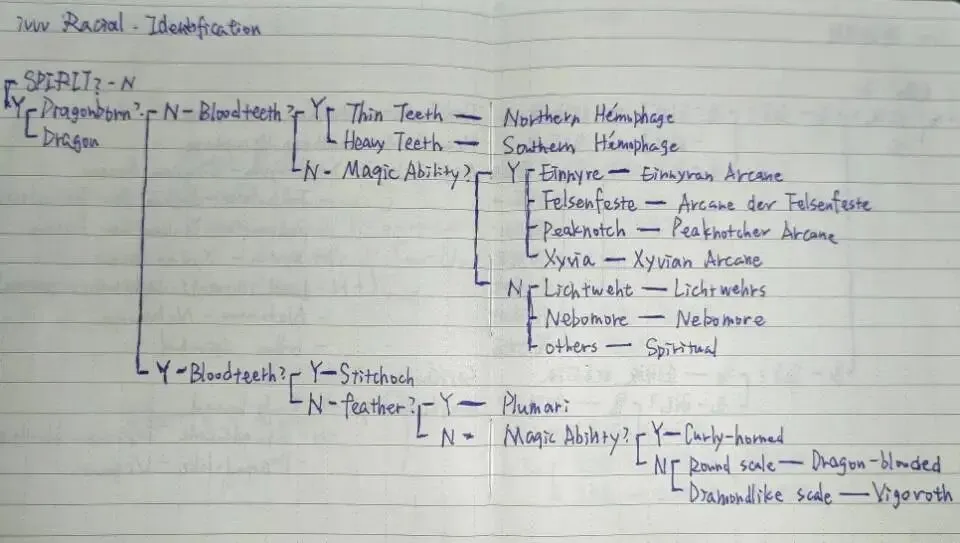 ivvv Racial - Identification
SPIRIT? - N
Y Dragonborn? N - Bloodteeth? Y Thin Teeth — Northern Hémophage
Dragon Heavy Teeth — Southern Hémophage
N - Magic Ability? Y Einnyre — Einnyran Arcane
Felsenfeste — Arcane der Felsenfeste
Peaknotch — Peaknotcher Arcane
Xyvia — Xyvian Arcane
N Lichtweht — Lichtwehrs
Nebomore — Nebomore
others — Spiritual
Y - Bloodteeth? Y — Stitchoch
N - feather? Y — Plumari
N - Magic Ability? Y — Curly-horned
N Round scale — Dragon-blooded
Diamondlike scale — Vigoroth